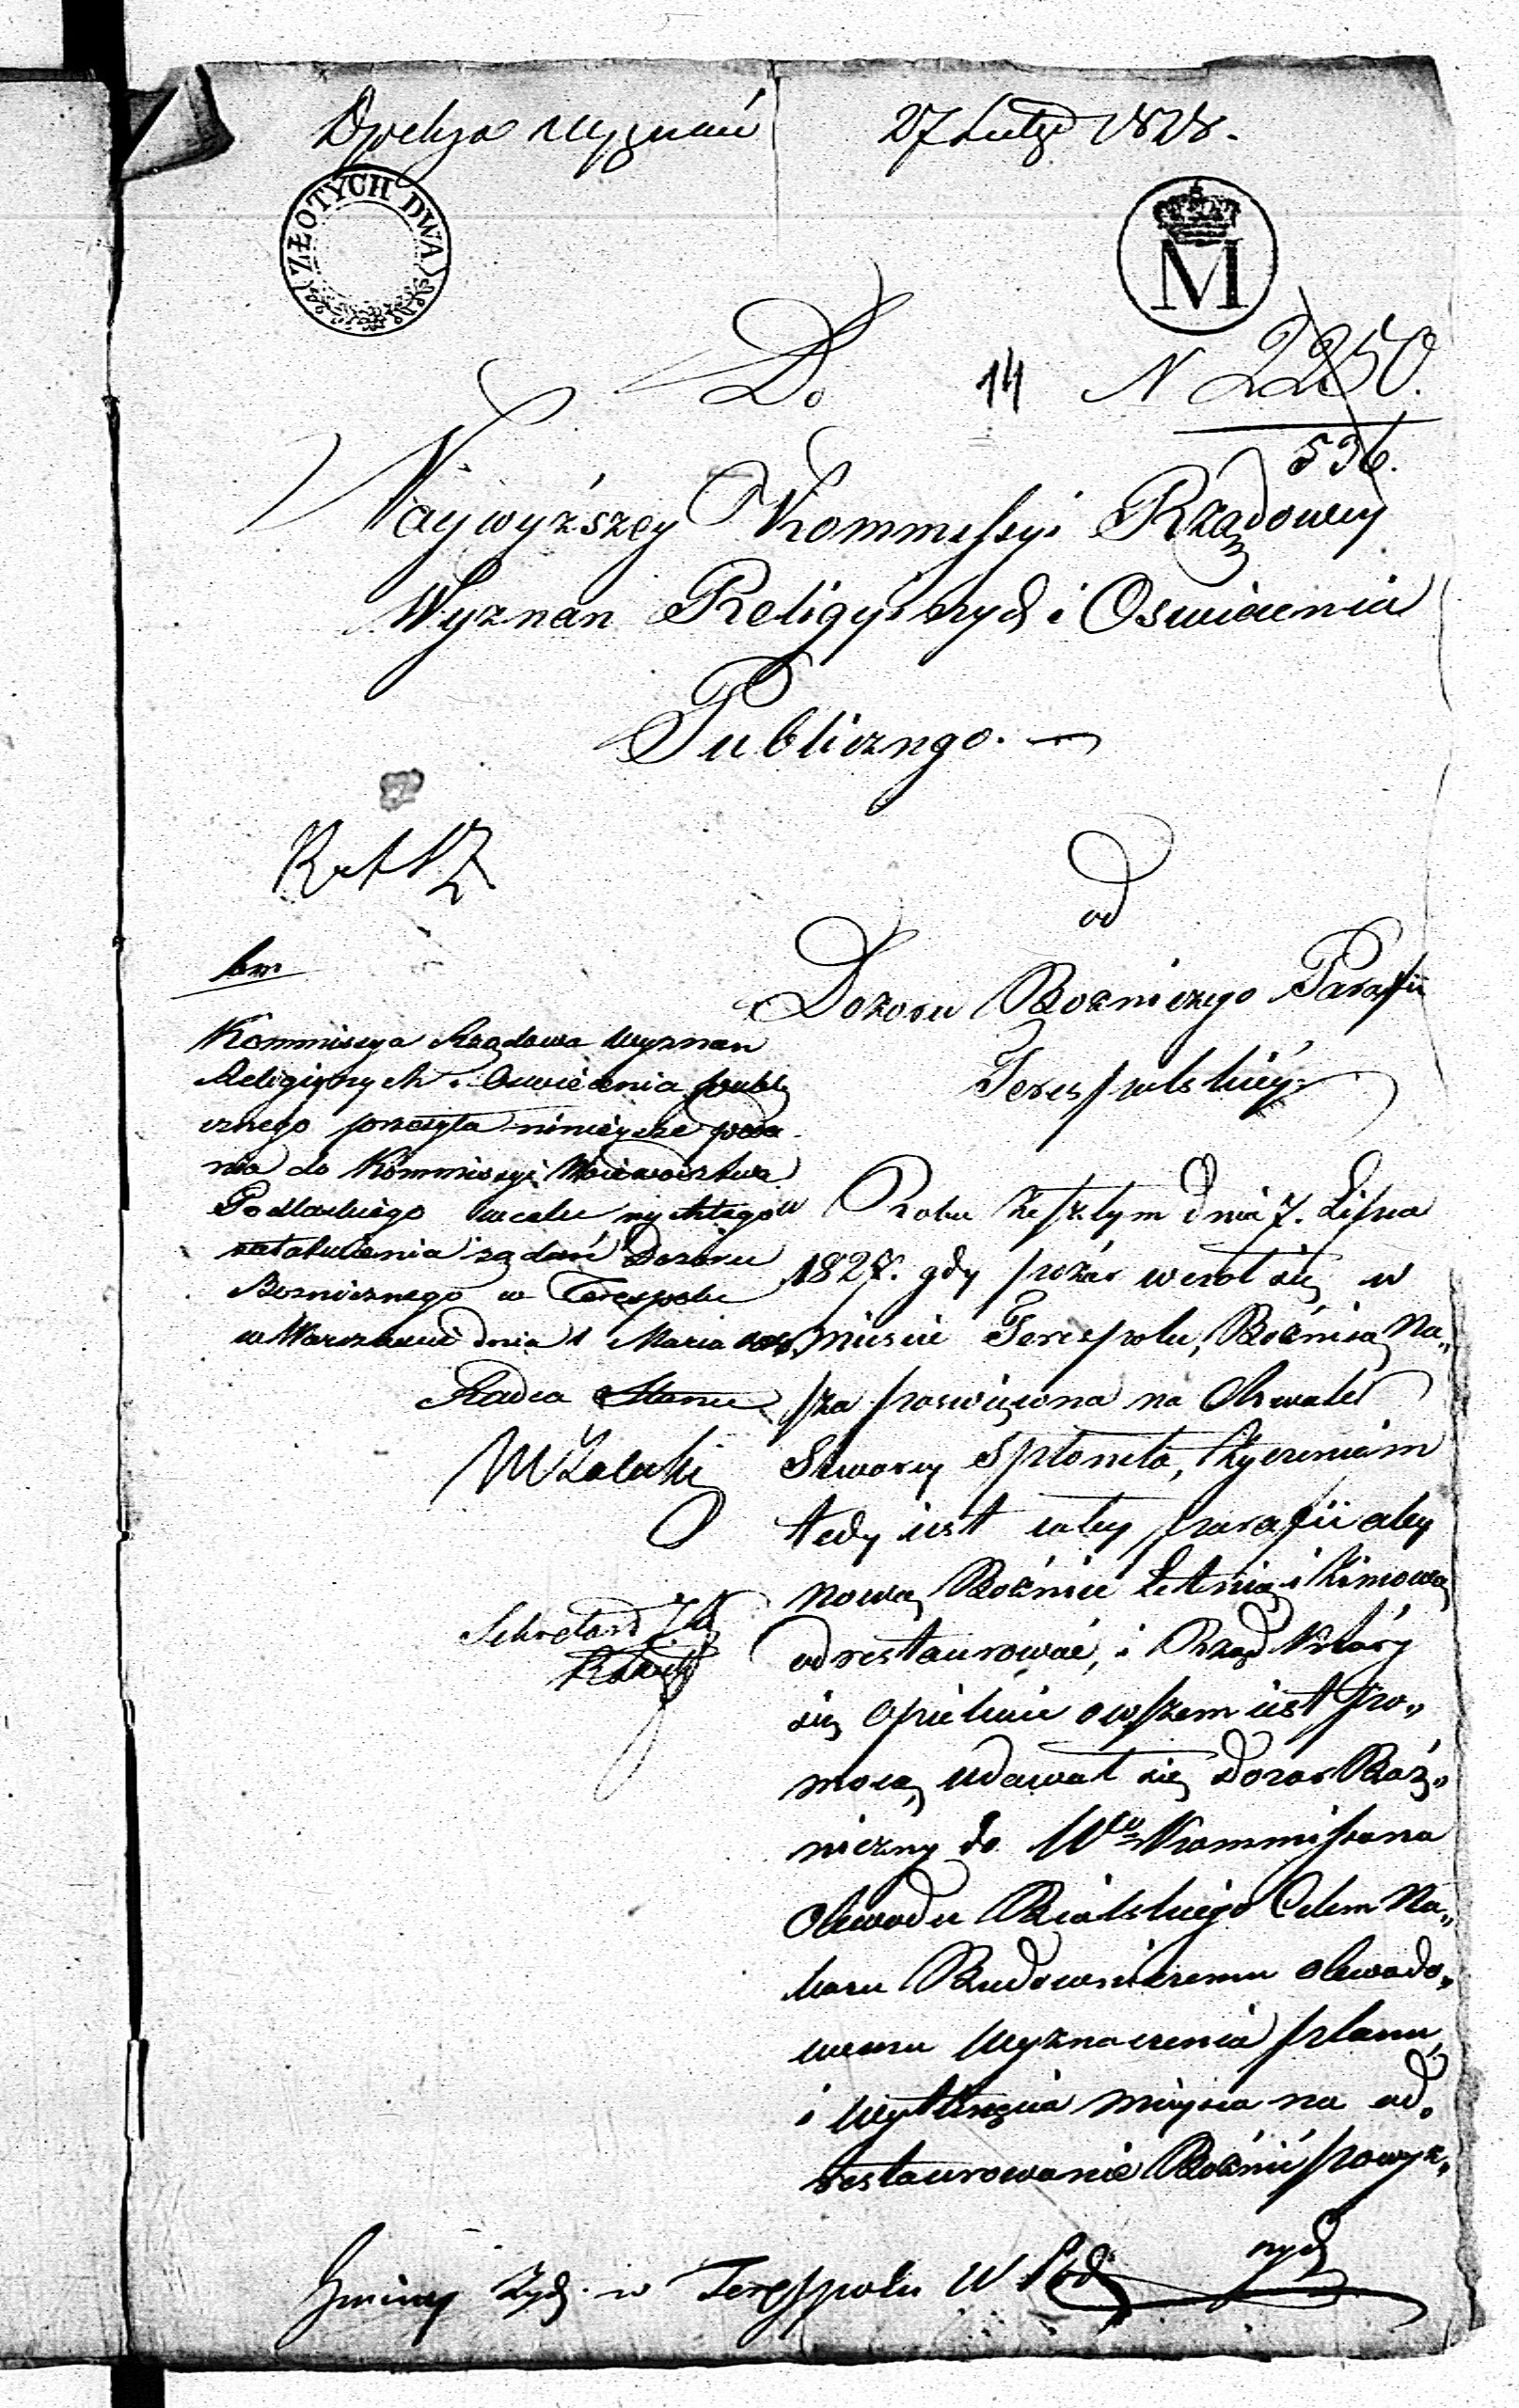 Dyrekcya wyznań
27 Lutego 1828.
ZŁOTYCH DWA
M
Do
14 N 2250.
536.
Naywyższey Kommissyi Rządowey
Wyznan Religyinych i Oswiecenia
Publiczngo.
od
Dozoru Bozniczego Parafii
Terespolskiéy
Kommissya Rządowa Wyznan
Religiynych i Oswiecenia publi
cznego przesyła ninieysze poda
nia do Kommissyi Woiewodztwa
Podlaskiego w celu rychłego
załatwienia żądań Dozoru
Boznicznego w Terespolu
w Warszawie dnia 1 Marca
Radca Stanu
Sekretarz
w Roku Zeszłym Dnia 7. Lipca
1827. gdy pożar wszczoł się w
miescie Terespolu, Boźnica Na„
sza poswięcona na Chwałe
Stworcy Spłoneła, Zyczeniem
tedy iest całey parafii aby
nową Boźnice Letnią i Zimową
odrestaurować, i Rząd Który
się opiekuie owszem iest po„
mocą, udawał się Dozor Boź„
niczny do W⁰ Kommissarza
Obwodu Bialskiego Celem Na„
kazu Budowniczemu obwodo„
wemu Wyznaczenia planu
i Wytknięcia mieysca na od„
restaurowanie Boźnic powyż„
nych
Gminy Żyd. w Terespolu W Pod